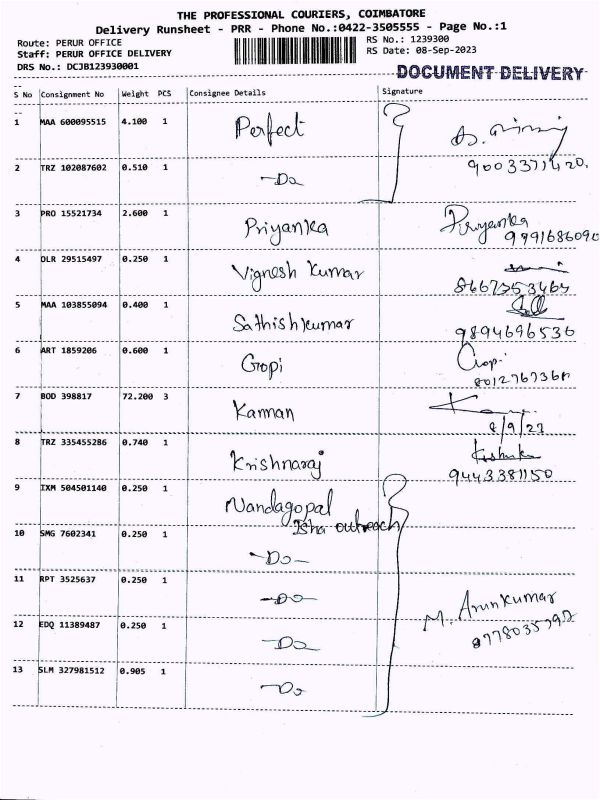 THE PROFESSIONAL COURIERS, COIMBATORE
Delivery Runsheet - PRR - Phone No.:0422-3505555 - Page No.:1
Route: PERUR OFFICE RS No.: 1239300
Staff: PERUR OFFICE DELIVERY RS Date: 08-Sep-2023
DRS No.: DCJB123930001
DOCUMENT DELIVERY
S No Consignment No Weight PCS Consignee Details Signature
1 MAA 600095515 4.100 1 Perfect
2 TRZ 102087602 0.510 1 -Do 9003371420.
3 PRO 15521734 2.600 1 Priyanka Priyanka
9991686090
4 DLR 29515497 0.250 1 Vignesh Kumar
8667353465
5 MAA 103855094 0.400 1 Sathishkumar
9894696536
6 ART 1859206 0.600 1 Gopi Gopi
7 BOD 398817 72.200 3 Kannan
8/9/23
8 TRZ 335455286 0.740 1 Krishnaraj
9443381150
9 IXM 504501140 0.250 1 Nandagopal
Isha outreach
10 SMG 7602341 0.250 1 -Do-
11 RPT 3525637 0.250 1 -Do-
12 EDQ 11389487 0.250 1 -Do- M. Arunkumar
13 SLM 327981512 0.905 1 -Do